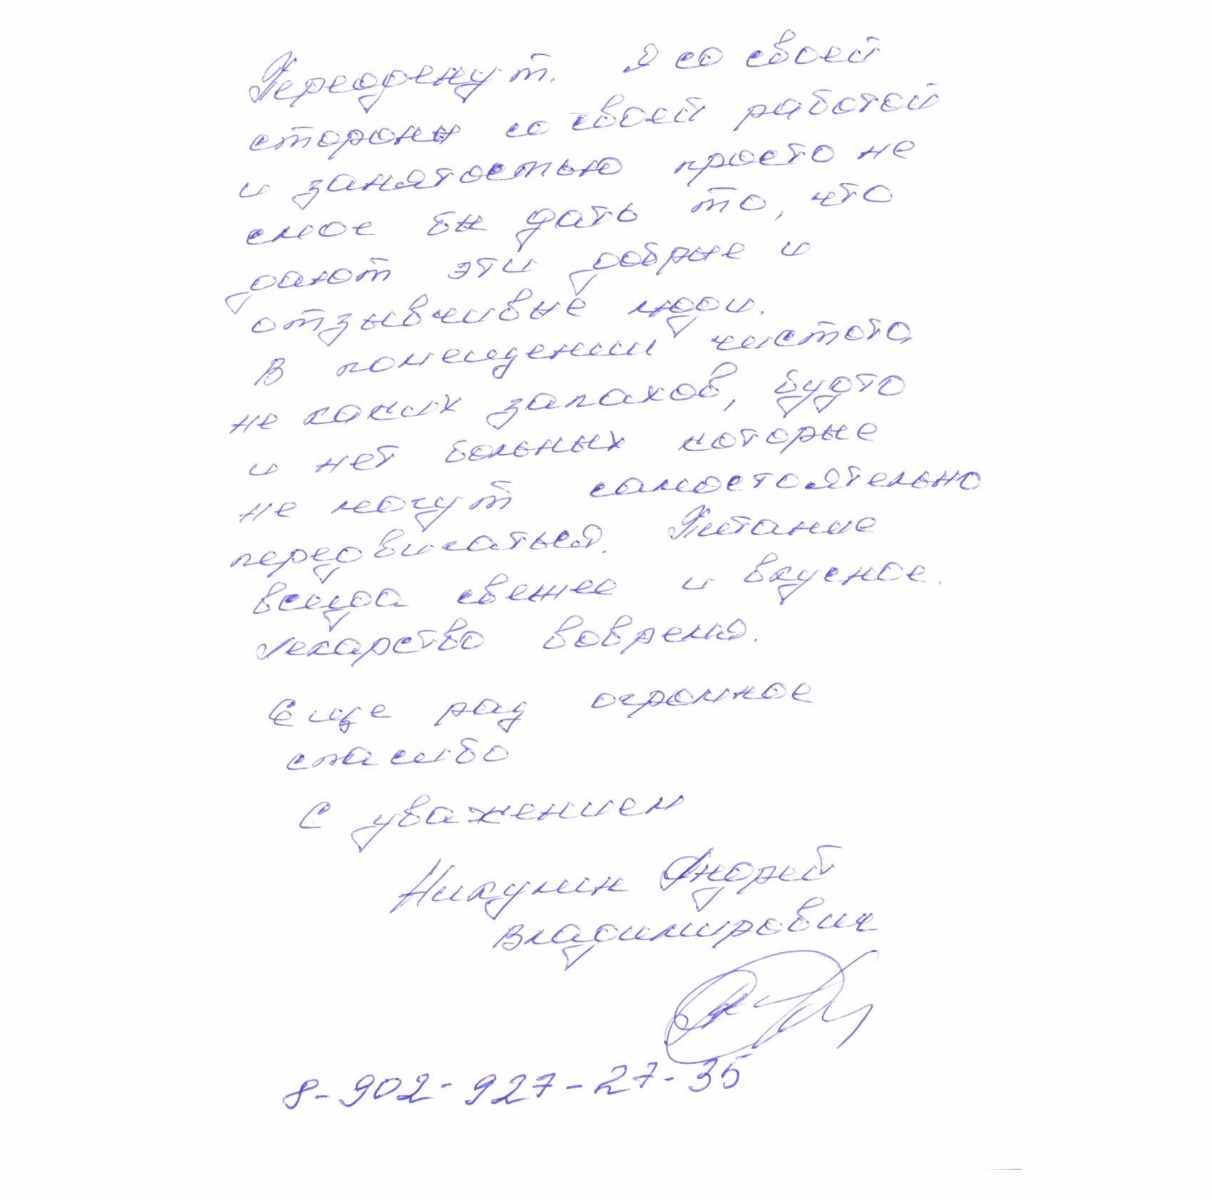 Переоденут. Я со своей
стороны со своей работой
и занятостью просто не
смог бы дать то, что
дают эти добрые и
отзывчивые люди.
В помещении чистота,
не каких запахов, будто
и нет больных которые
не могут самостоятельно
передвигаться. Питание
всегда свежее и вкусное.
Лекарство вовремя.
Еще раз огромное
спасибо
С уважением
Никулин Андрей
Владимирович
8-902-927-27-35